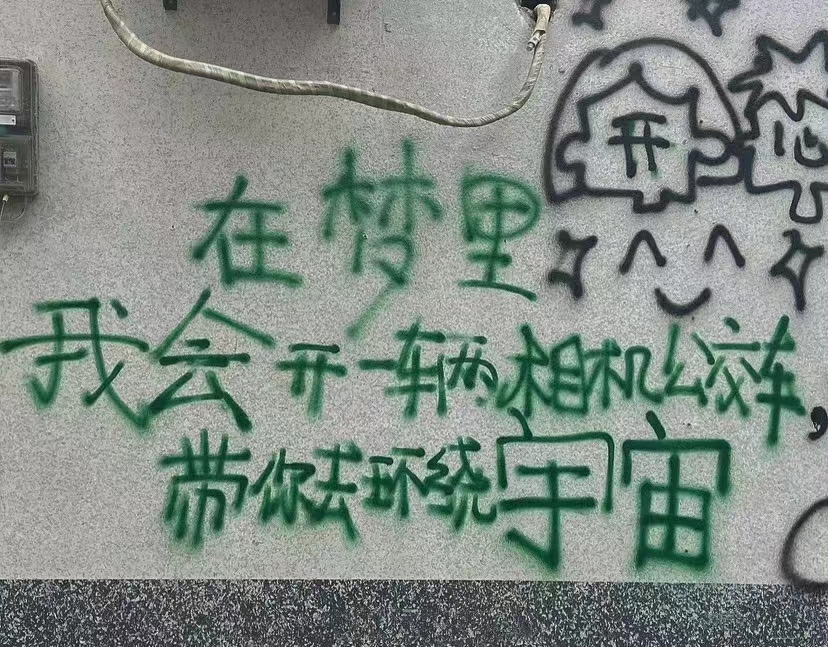 开心
在梦里
我会开一辆相机公交车,
带你去环绕宇宙